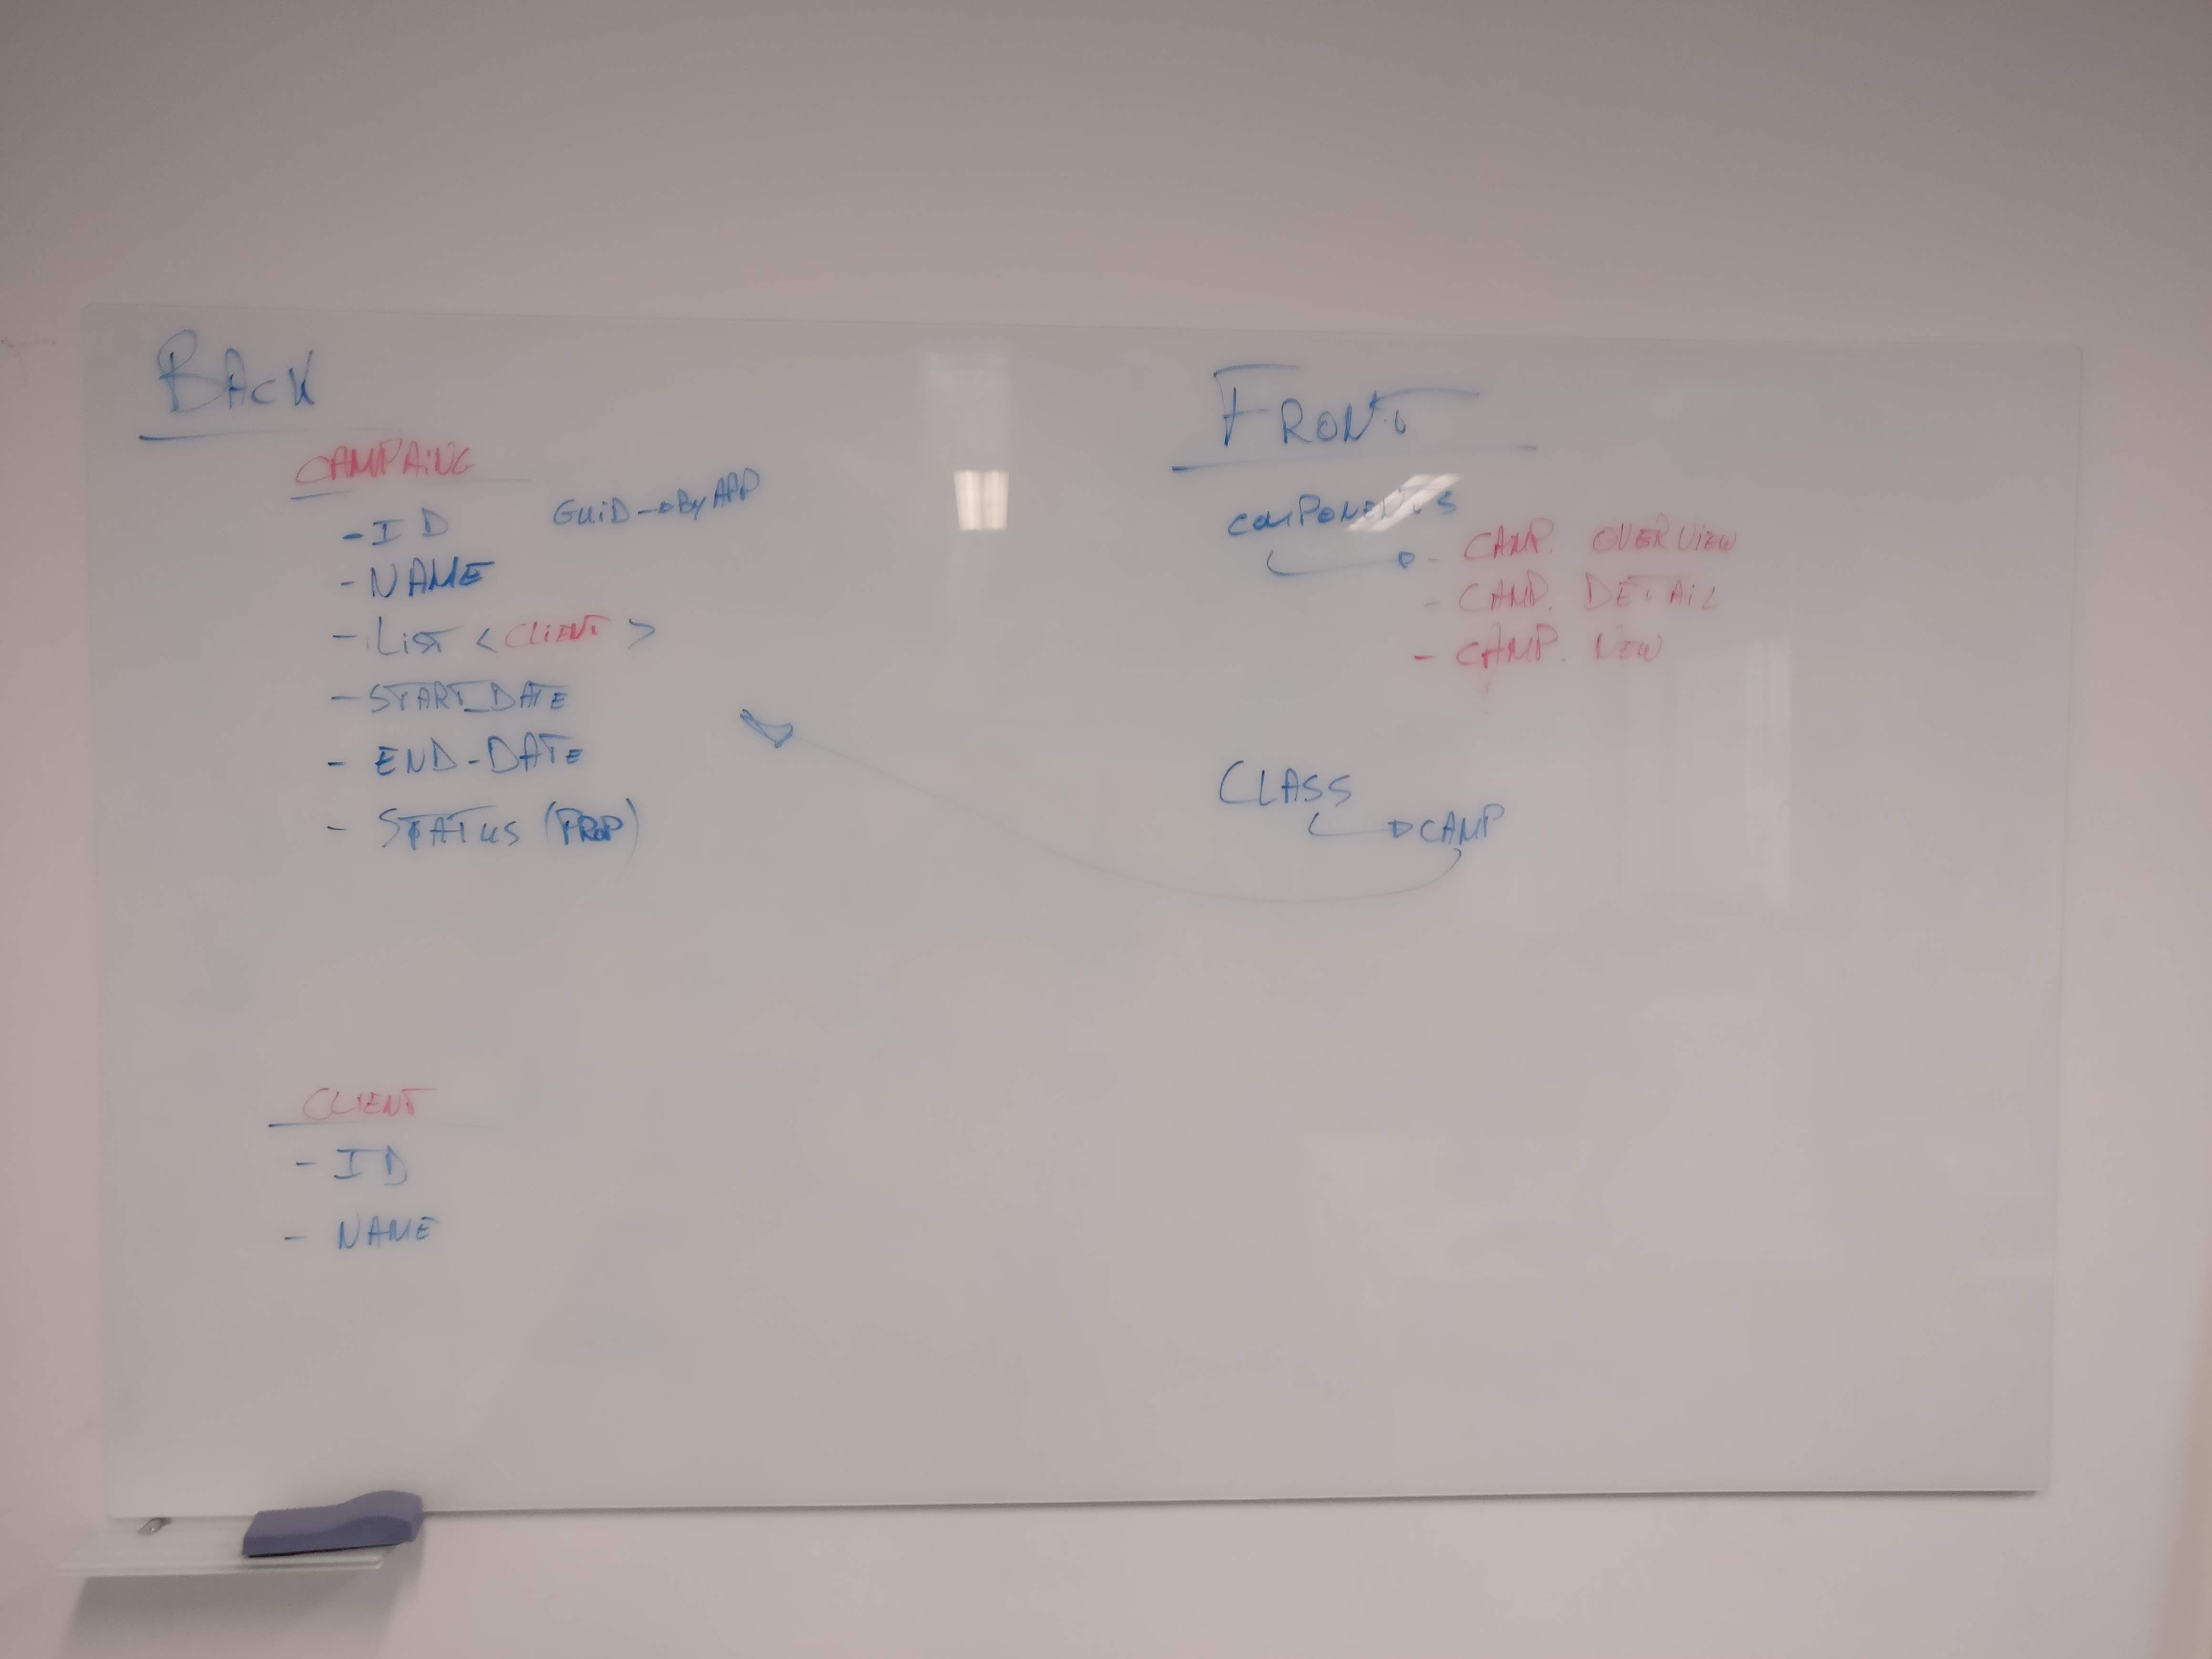 BACK
CAMPAING
- ID GUID → By APP
- NAME
- LIST < CLIENT >
- START_DATE
- END_DATE
- STATUS (PROP)
CLIENT
- ID
- NAME
FRONT
COMPONENTS
- CAMP. OVERVIEW
- CAMP. DETAIL
- CAMP. NEW
CLASS
→ CAMP